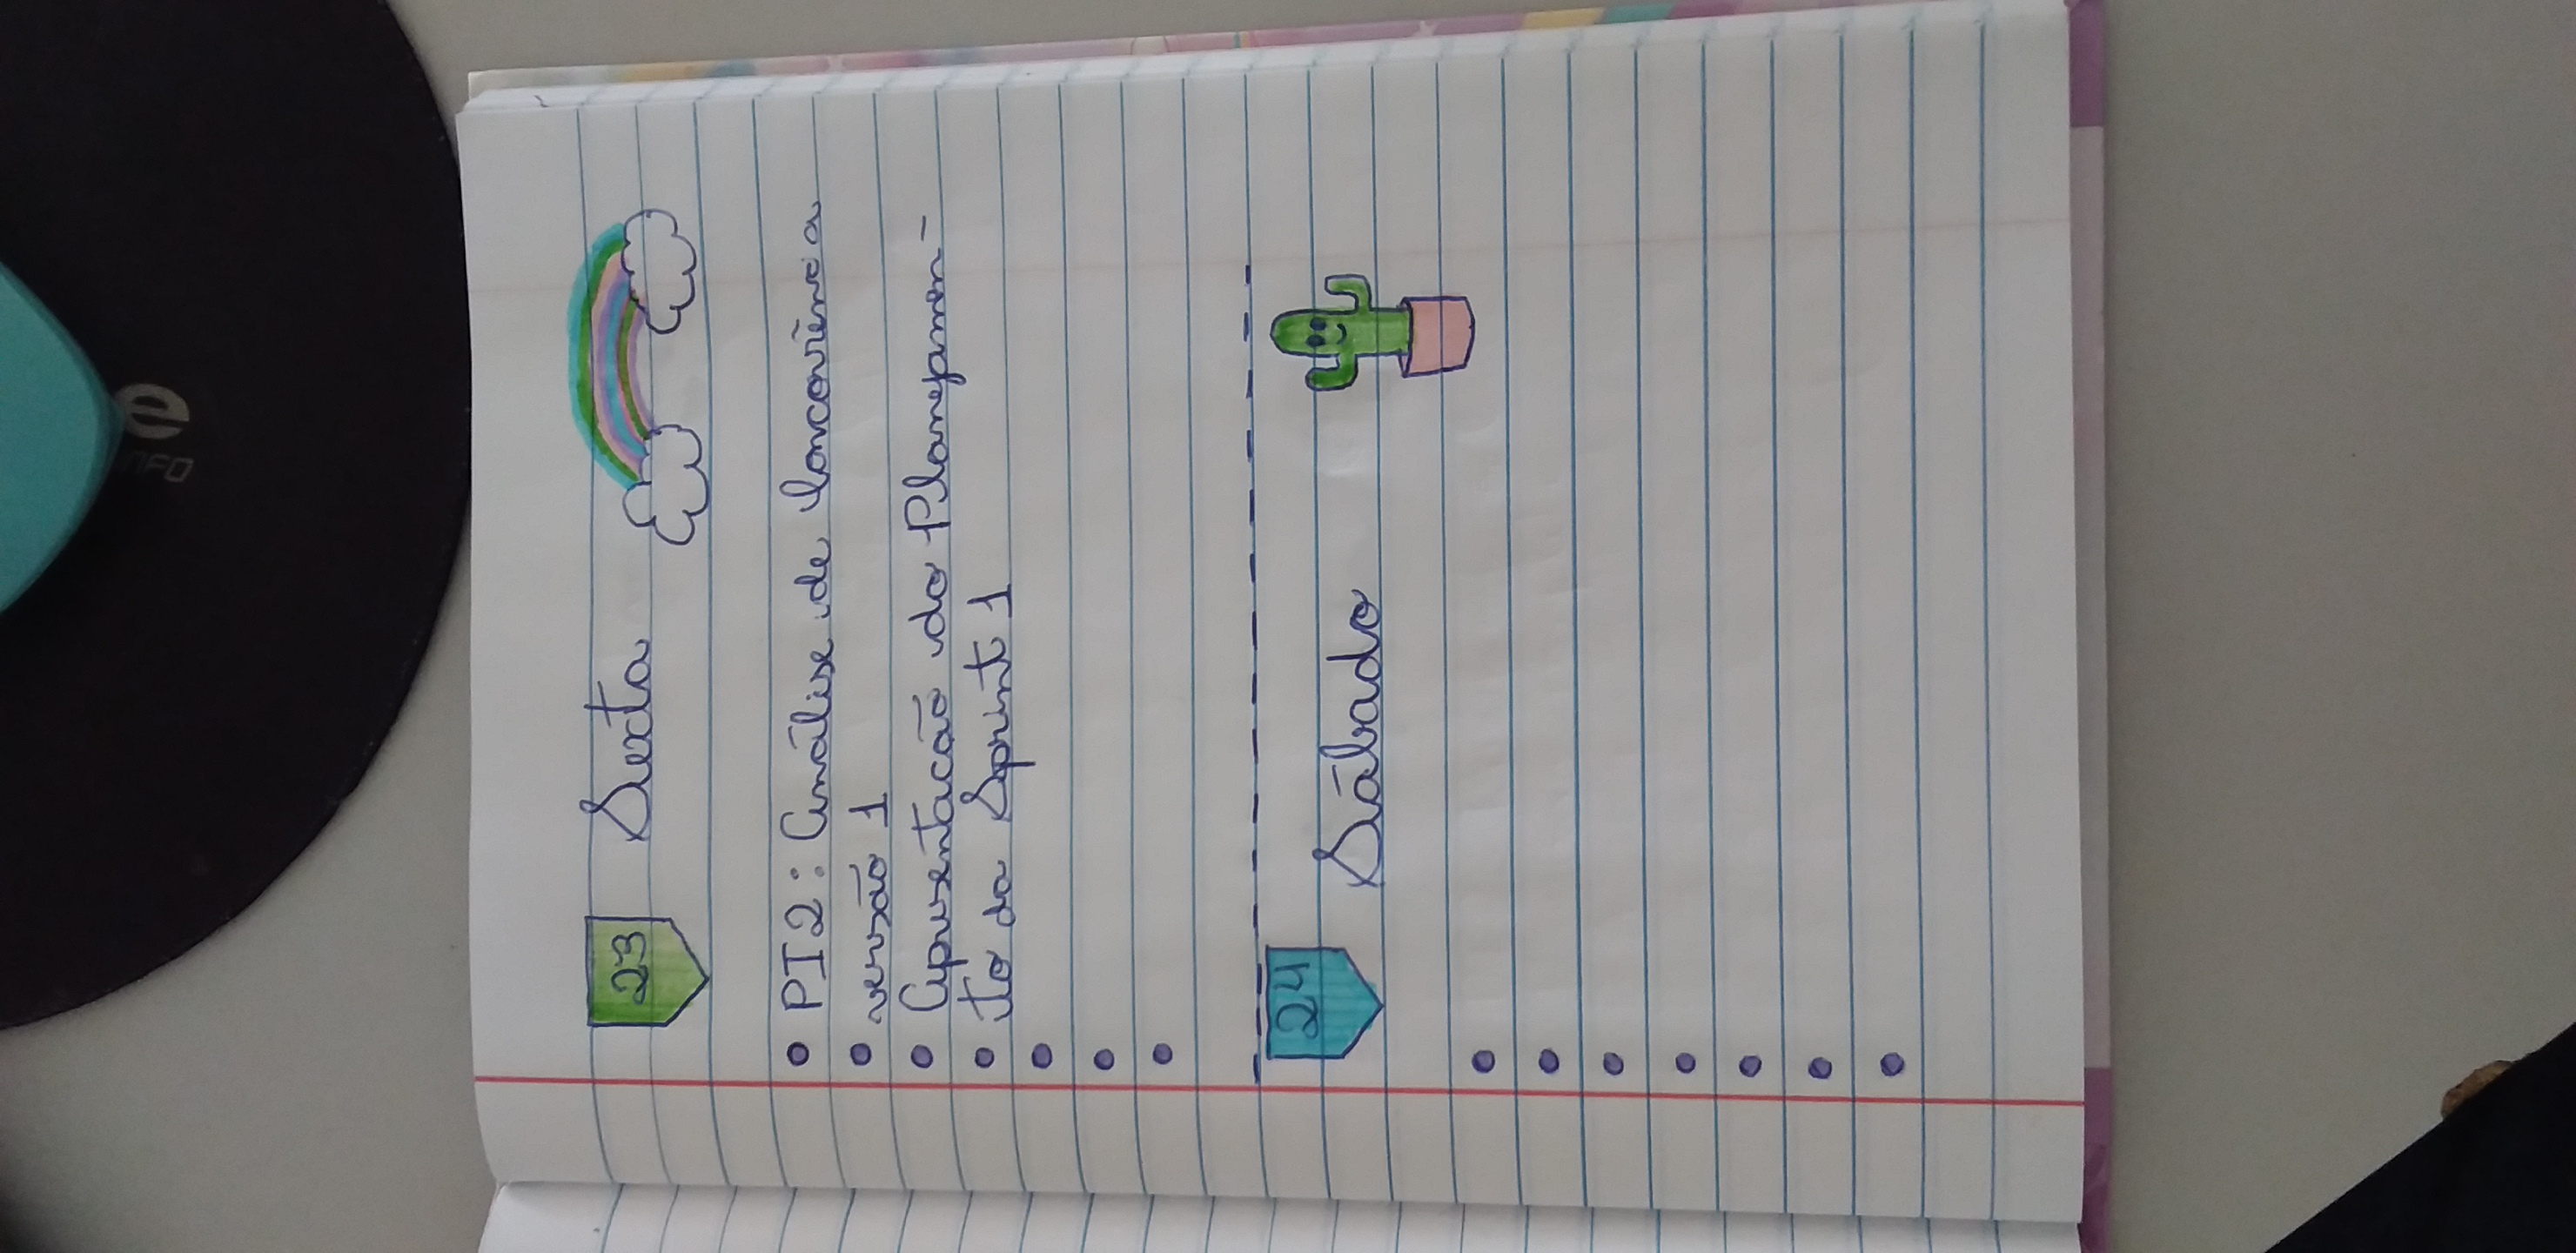 23 Sexta
• PI2: Análise de Concorrência
• versão 1
• Apresentacão do Planejamen-
• to da Sprint 1
24
Sábado